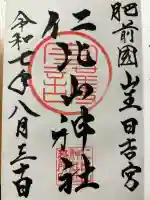 肥前國 山王日吉宮
仁比山神社
令和七年八月三十日